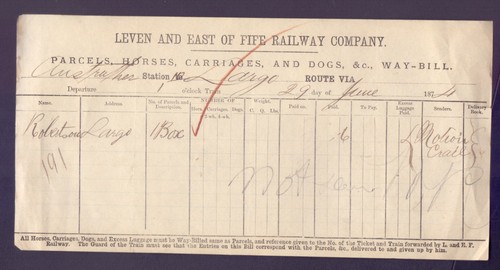 LEVEN AND EAST OF FIFE RAILWAY COMPANY.
PARCELS, HORSES, CARRIAGES, AND DOGS, &c., WAY-BILL.
Anstruther Station to Largo ROUTE VIA
Departure o'clock Train 29 day of June 1874
Name. Address. No. of Parcels and Description. NUMBER OF Weight. Paid on. To Pay. Excess Luggage Paid. Senders. Delivery Book.
Hors. Carriages. Dogs. C. Q. Lbs.
2-wh. 4-wh.
Robertson Largo 1 Box 6
Crail
191
Not
All Horses, Carriages, Dogs, and Excess Luggage must be Way-Billed same as Parcels, and reference given to the No. of the Ticket and Train forwarded by L. and E. F.
Railway. The Guard of the Train must see that the Entries on this Bill correspond with the Parcels, &c., delivered to and given up by him.